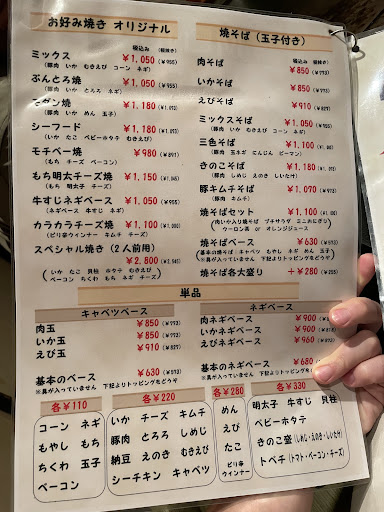 お好み焼き オリジナル
税込み (税抜き)
ミックス ¥1,050 (¥955)
(豚肉 いか むきえび コーン ネギ)
ぶんとろ焼 ¥1,050 (¥955)
モダン焼 ¥1,180 (¥1,073)
(豚肉 いか めん 玉子)
シーフード ¥1,180 (¥1,073)
(いか たこ ベビーホタテ むきえび)
モチベー焼 ¥980 (¥891)
(もち チーズ ベーコン)
もち明太チーズ焼 ¥1,150 (¥1,045)
(もち 明太子 チーズ)
牛すじネギベース ¥1,050
(ネギベース 牛すじ ネギ)
カラカラチーズ焼 ¥1,100 (¥1,000)
(ピリ辛ウインナー キムチ チーズ)
スペシャル焼き (2人前用)
¥2,800 (¥2,545)
(いか たこ 貝柱 ホタテ むきえび
ちくわ もち ネギ チーズ)
焼そば (玉子付き)
税込み (税抜き)
肉そば ¥850 (¥773)
いかそば ¥850 (¥773)
えびそば ¥910 (¥827)
ミックスそば ¥1,050 (¥955)
(豚肉 いか むきえび コーン ネギ)
三色そば ¥1,100 (¥1,000)
(豚肉 玉ネギ にんじん ピーマン)
きのこそば ¥1,180 (¥1,073)
(豚肉 しめじ えのき しいたけ)
豚キムチそば ¥1,090 (¥991)
(豚肉 キムチ)
焼そばセット ¥1,100 (¥1,000)
ウーロン茶 or オレンジジュース
焼そばベース ¥630 (¥573)
※具が入っていません 下記よりトッピングをどうぞ
焼そば各大盛り +¥280 (¥255)
単品
キャベツベース
肉玉 ¥850 (¥773)
いか玉 ¥850 (¥773)
えび玉 ¥910 (¥827)
基本のベース ¥630 (¥573)
※具が入っていません 下記よりトッピングをどうぞ
ネギベース
肉ネギベース ¥900 (¥818)
いかネギベース ¥900 (¥818)
えびネギベース ¥960 (¥873)
基本のネギベース ¥680 (¥618)
※具が入っていません 下記よりトッピングをどうぞ
各¥110
コーン ネギ
もやし もち
ちくわ 玉子
ベーコン
各¥220
いか チーズ キムチ
豚肉 とろろ しめじ
納豆 えのき むきえび
シーチキン キャベツ
各¥280
めん
えび
たこ
ピリ辛
ウインナー
各¥330
明太子 牛すじ 貝柱
ベビーホタテ
きのこ盛 (しめじ・えのき・しいたけ)
トベチ (トマト・ベーコン・チーズ)